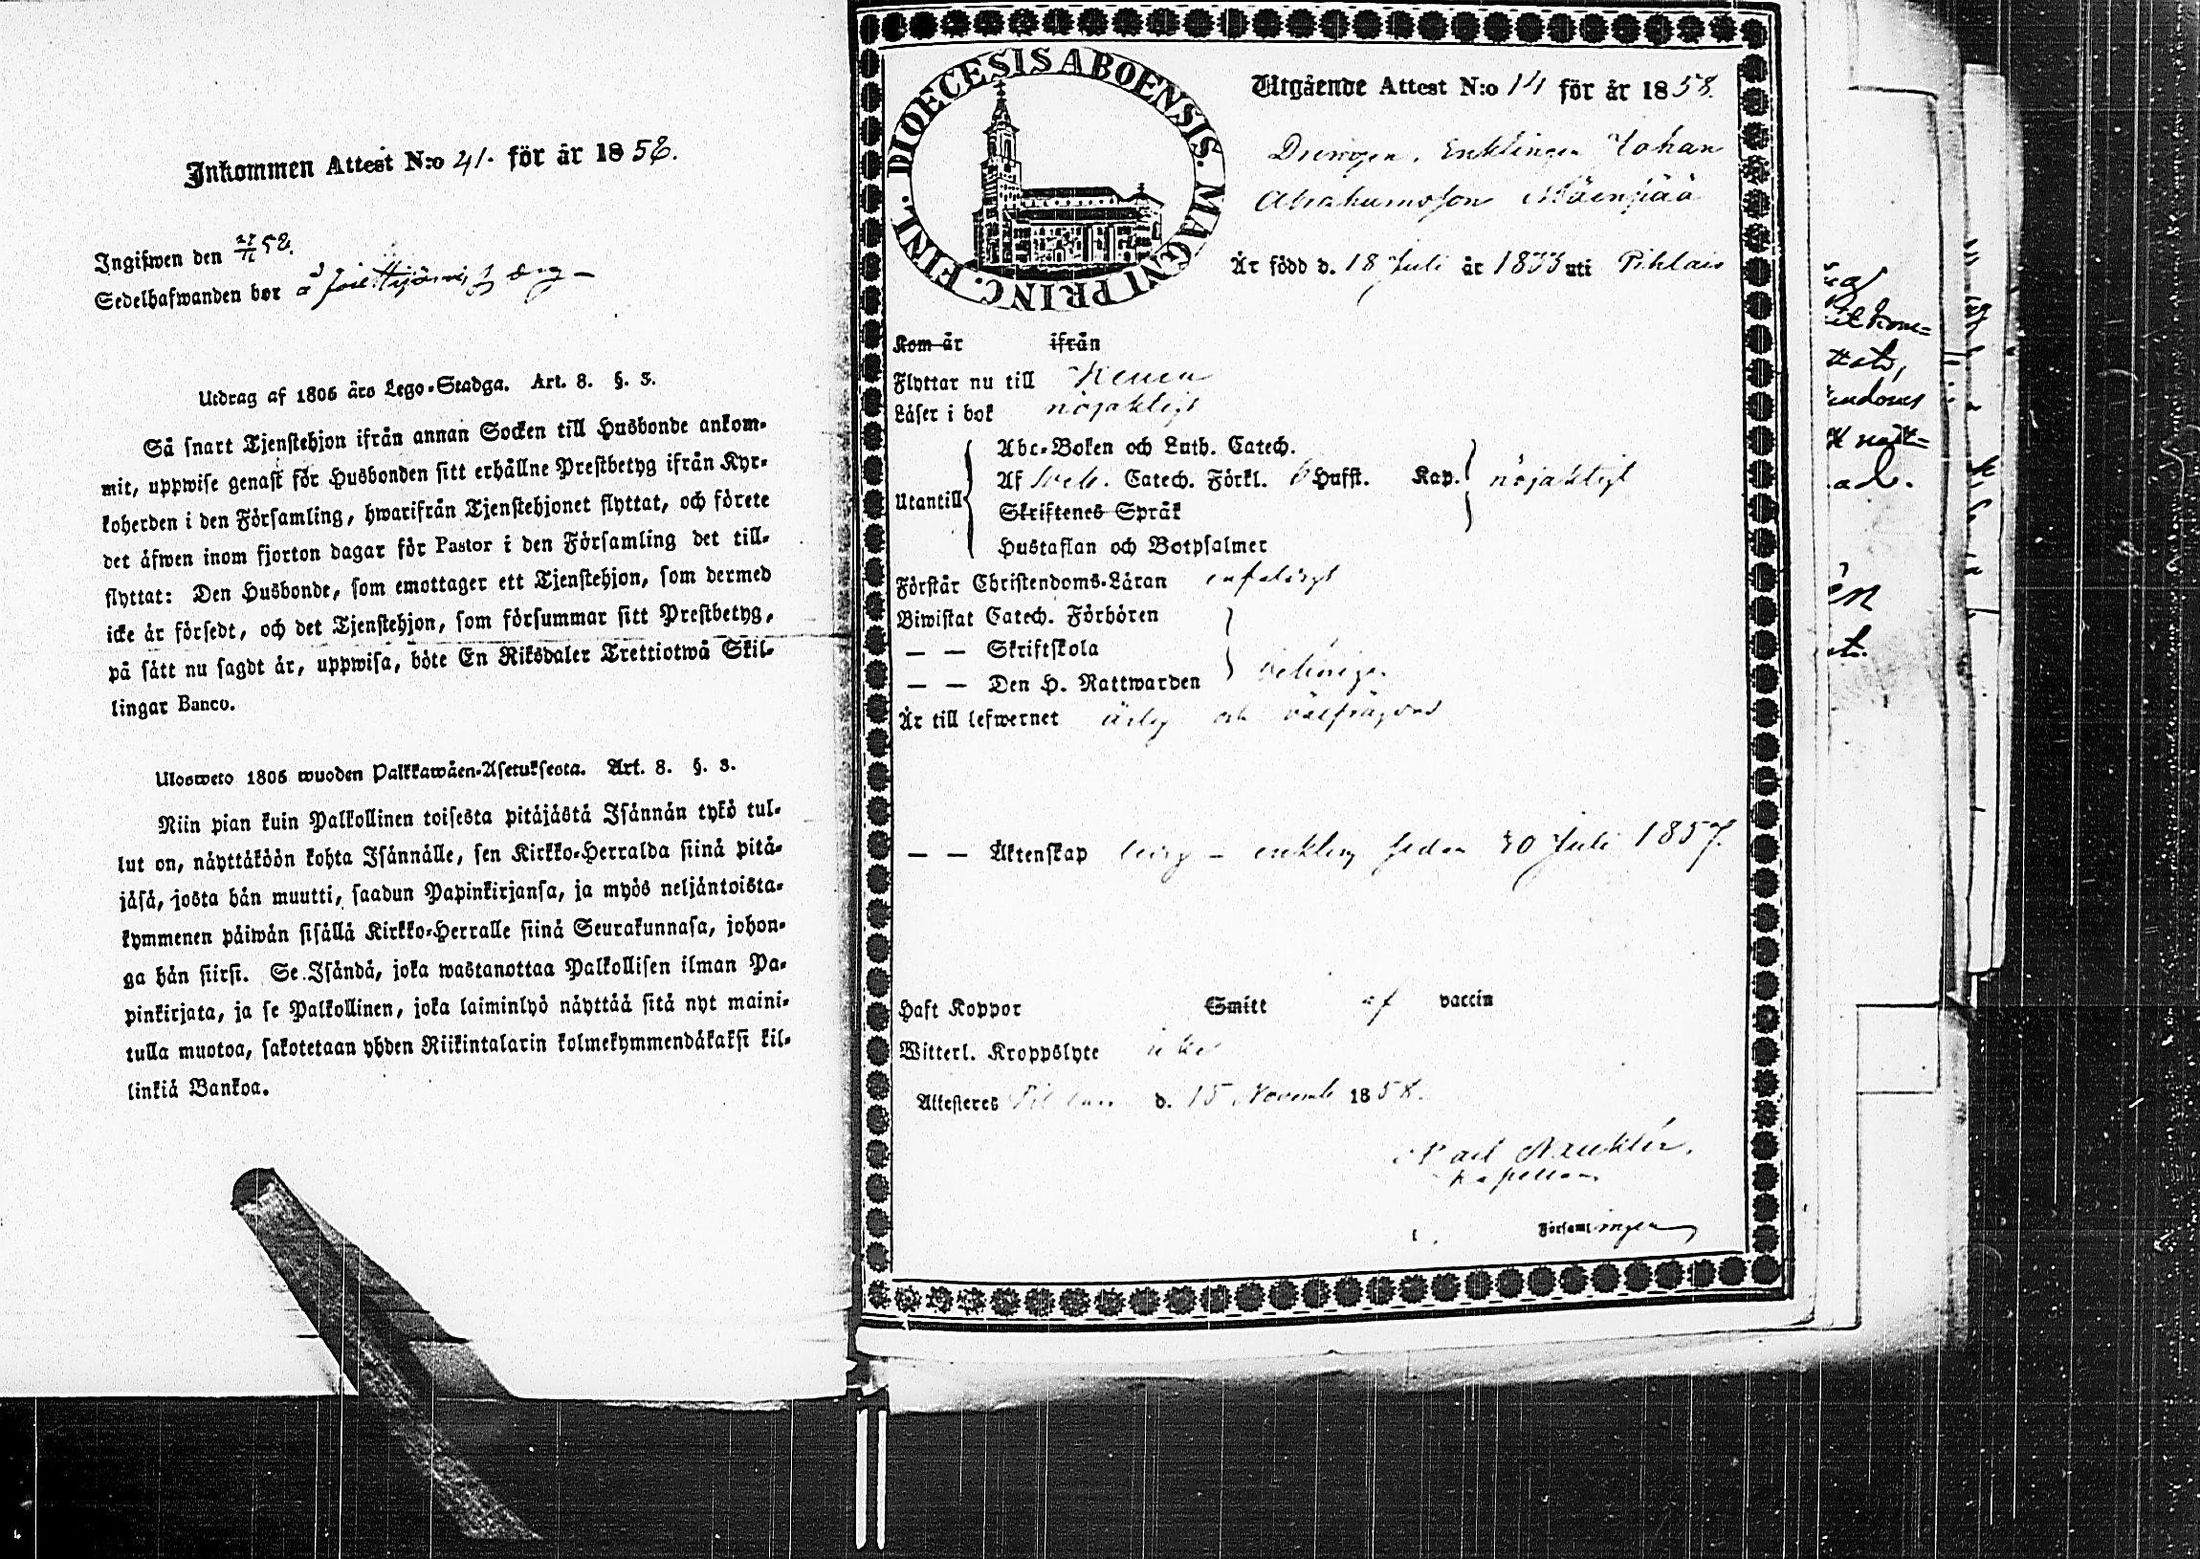 Inkommen Attest N:o 41. för år 1858.
Ingifwen den 27/11 58.
Sedelhafwanden bor å
Utdrag af 1805 års Lego-Stadga. Art. 8. §. 3.
Så snart Tjenstehjon ifrån annan Socken till Husbonde ankom-
mit, uppwise genast för Husbonden sitt erhållne Prestbetyg ifrån Kyr-
koherden i den Församling, hwarifrån Tjenstehjonet flyttat, och förete
det äfwen inom fjorton dagar för Pastor i den Församling det till-
flyttat: Den Husbonde, som emottager ett Tjenstehjon, som dermed
icke är försedt, och det Tjenstehjon, som försummar sitt Prestbetyg,
på sätt nu sagdt är, uppwisa, böte En Riksdaler Trettiotwå Skil-
lingar Banco.
Ulosweto 1805 wuoden Palkkawäen-Asetuksesta. Art. 8. §. 3.
Niin pian kuin Palkollinen toisesta pitäjästä Isännän tykö tul-
lut on, näyttäköön kohta Isännälle, sen Kirkko-Herralda siinä pitä-
jäsä, josta hän muutti, saadun Papinkirjansa, ja myös neljäntoista-
kymmenen päiwän sisällä Kirkko-Herralle siinä Seurakunnasa, johon-
ga hän siirsi. Se Isändä, joka wastanottaa Palkollisen ilman Pa-
pinkirjata, ja se Palkollinen, joka laiminlyö näyttää sitä nyt maini-
tulla muotoa, sakotetaan yhden Riikintalarin kolmekymmendäkaksi kil-
linkiä Bankoa.
DIOECESIS ABOENSIS. MAGNI PRINC. FINL.
Utgående Attest N:o 14 för år 1858.
Drengen, Enklingen Johan
Abrahamsson Mäenpää
Är född d. 18 Juli år 1833 uti Pihlais
Kom år ifrån
Flyttar nu till
Läser i bok nöjaktigt
Utantill
Abc-Boken och Luth. Catech.
Af Sveb. Catech. Förkl. 6 Hufst. Kap. nöjaktigt
Skriftenes Språk
Hustaflan och Botpsalmer
Förstår Christendoms-Läran enfaldigt
Biwistat Catech. Förhören
— — Skriftskola
— — Den H. Nattwarden
Är till lefwernet ärlig och välfrägdad
— — Äktenskap ledig - enkling sedan 30 Juli 1857.
Haft Koppor Smitt af vaccin
Witterl. Kroppslyte icke
Attesteres d. 15 November 1858.
Kapellan
Församlingen